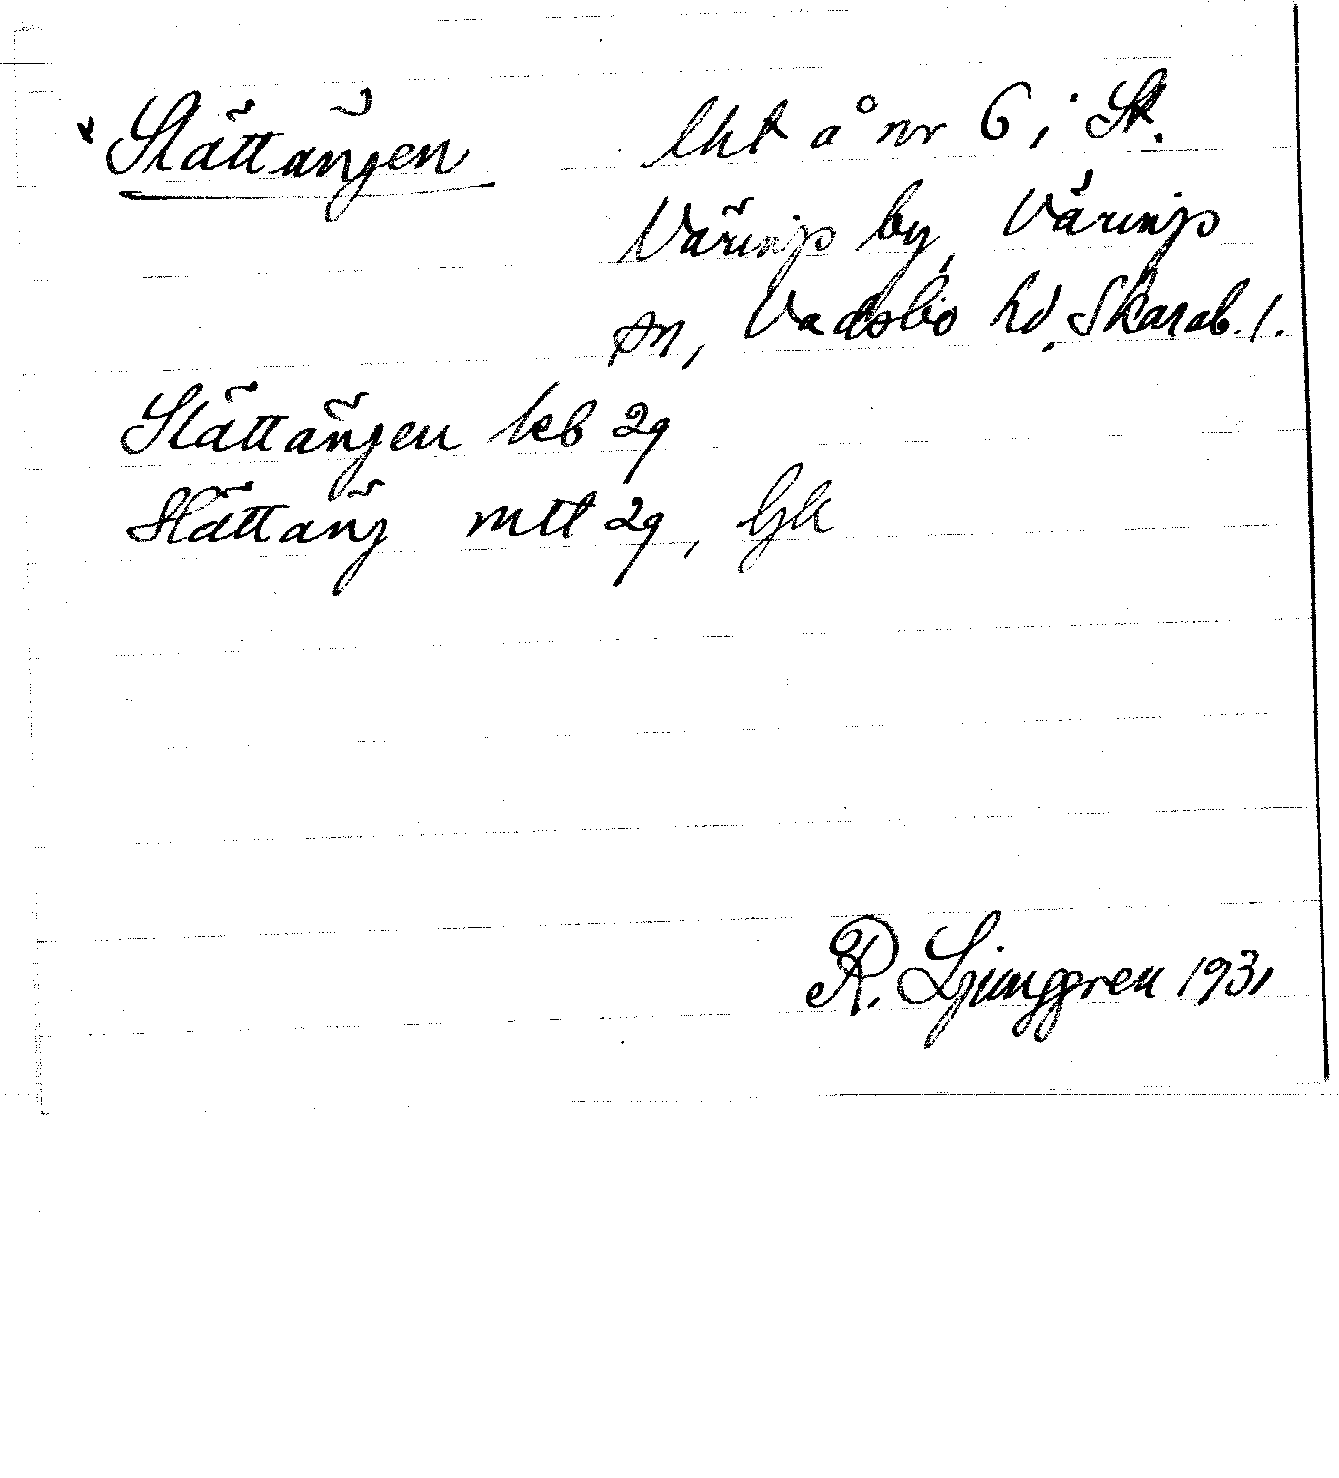 Slättängen lht å nr 6 i St.
Värings by, Värings
sn, Vadsbo hd, Skarab. l.
Slättängen keb 29
Slättäng mtl 29, Gk
R. Ljunggren 1931